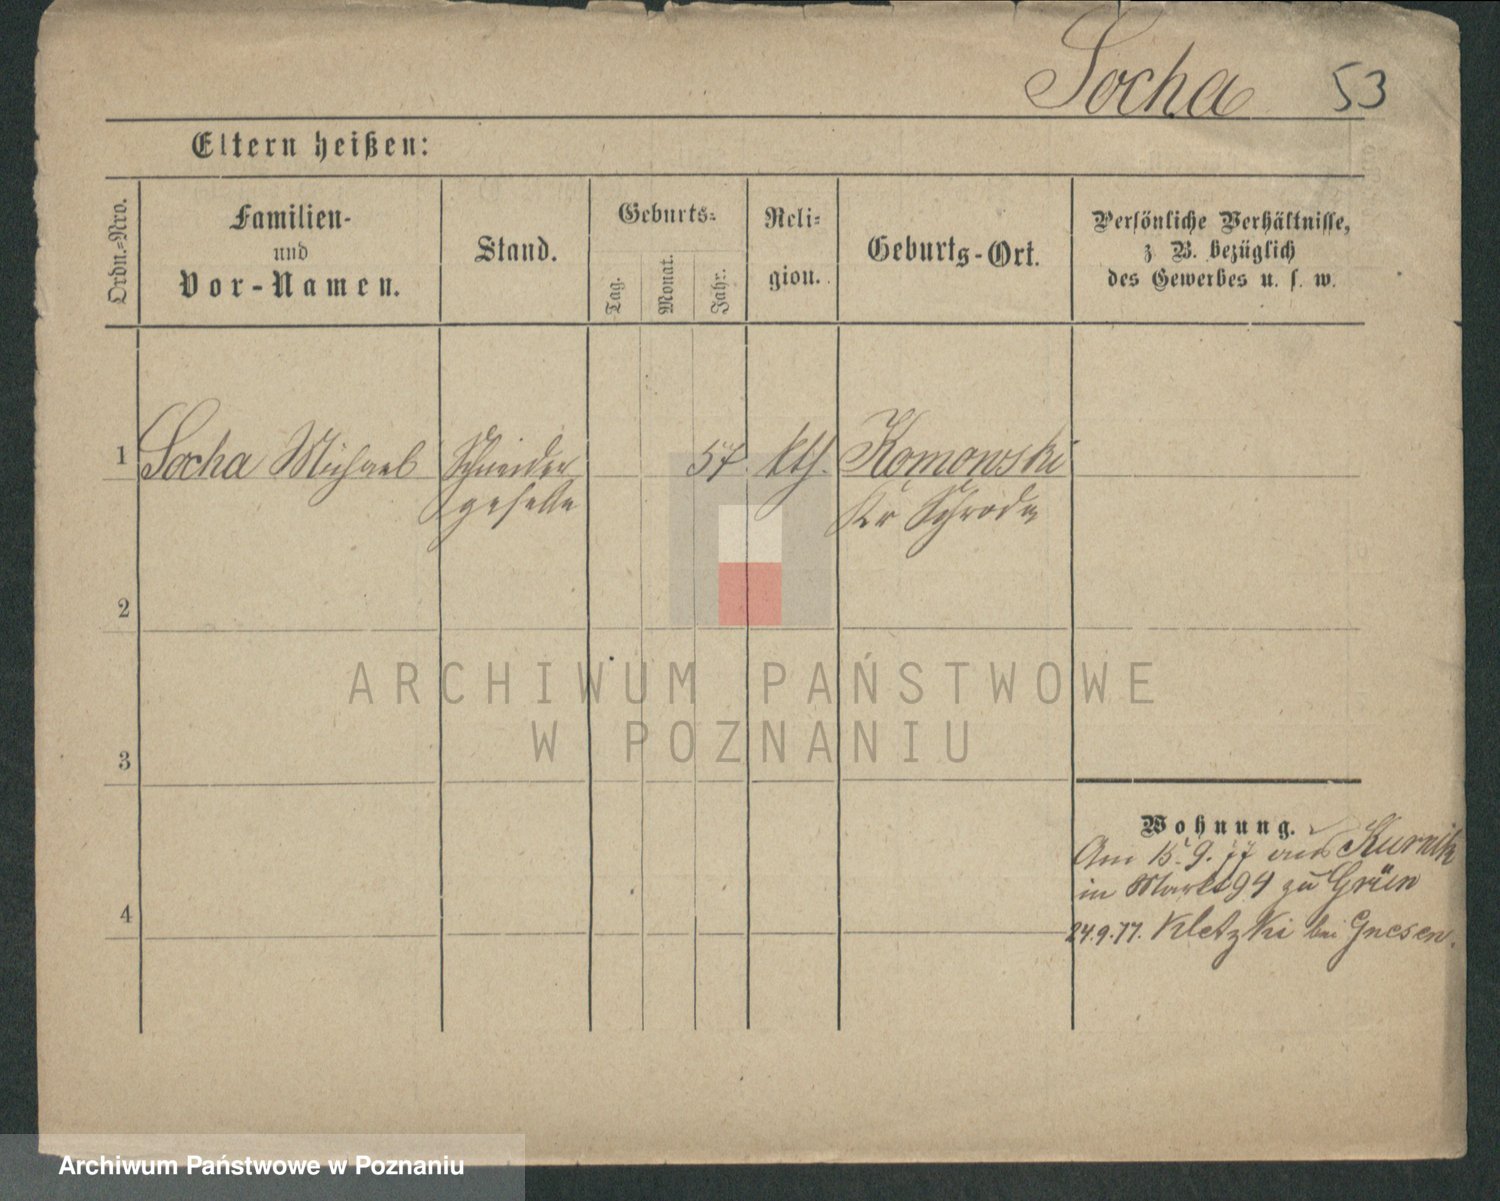 Socha 53
Eltern heißen:
Ordn.-Nro.
Familien-
und
Vor-Namen.
Stand.
Geburts-
Tag.
Monat.
Jahr.
Reli-
gion.
Geburts-Ort.
Persönliche Verhältnisse,
z. B. bezüglich
des Gewerbes u. s. w.
1 Socha Michael Schneider 57. kth. Komowski
geselle Kr Schroda
2
ARCHIWUM PAŃSTWOWE
W POZNANIU
3
Wohnung.
Am 15. 9. 77 aus Kurnik
in Markt 94 zu Grün
4
24.9.77. Kletzki bei Gnesen.
Archiwum Państwowe w Poznaniu